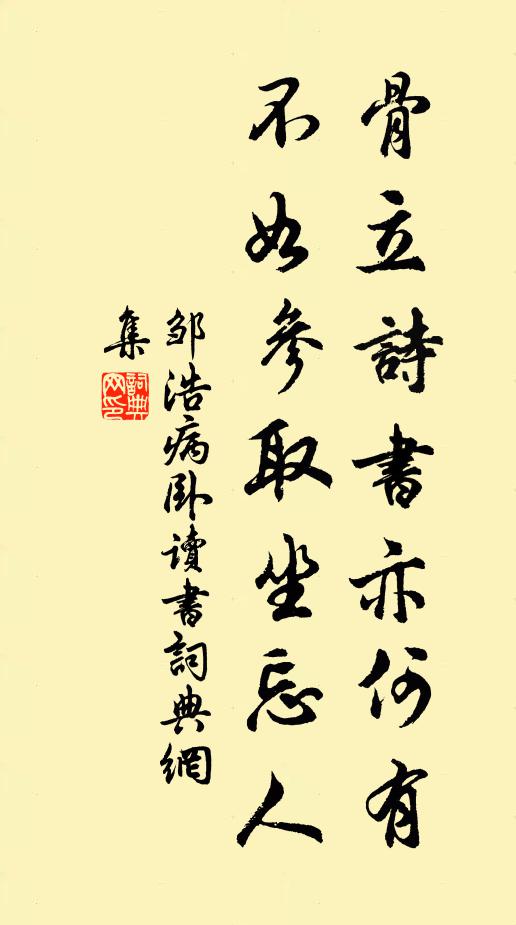 骨立詩書亦何有
不如參取坐忘人
邹浩病卧讀書詞典網
集
詞典
网印